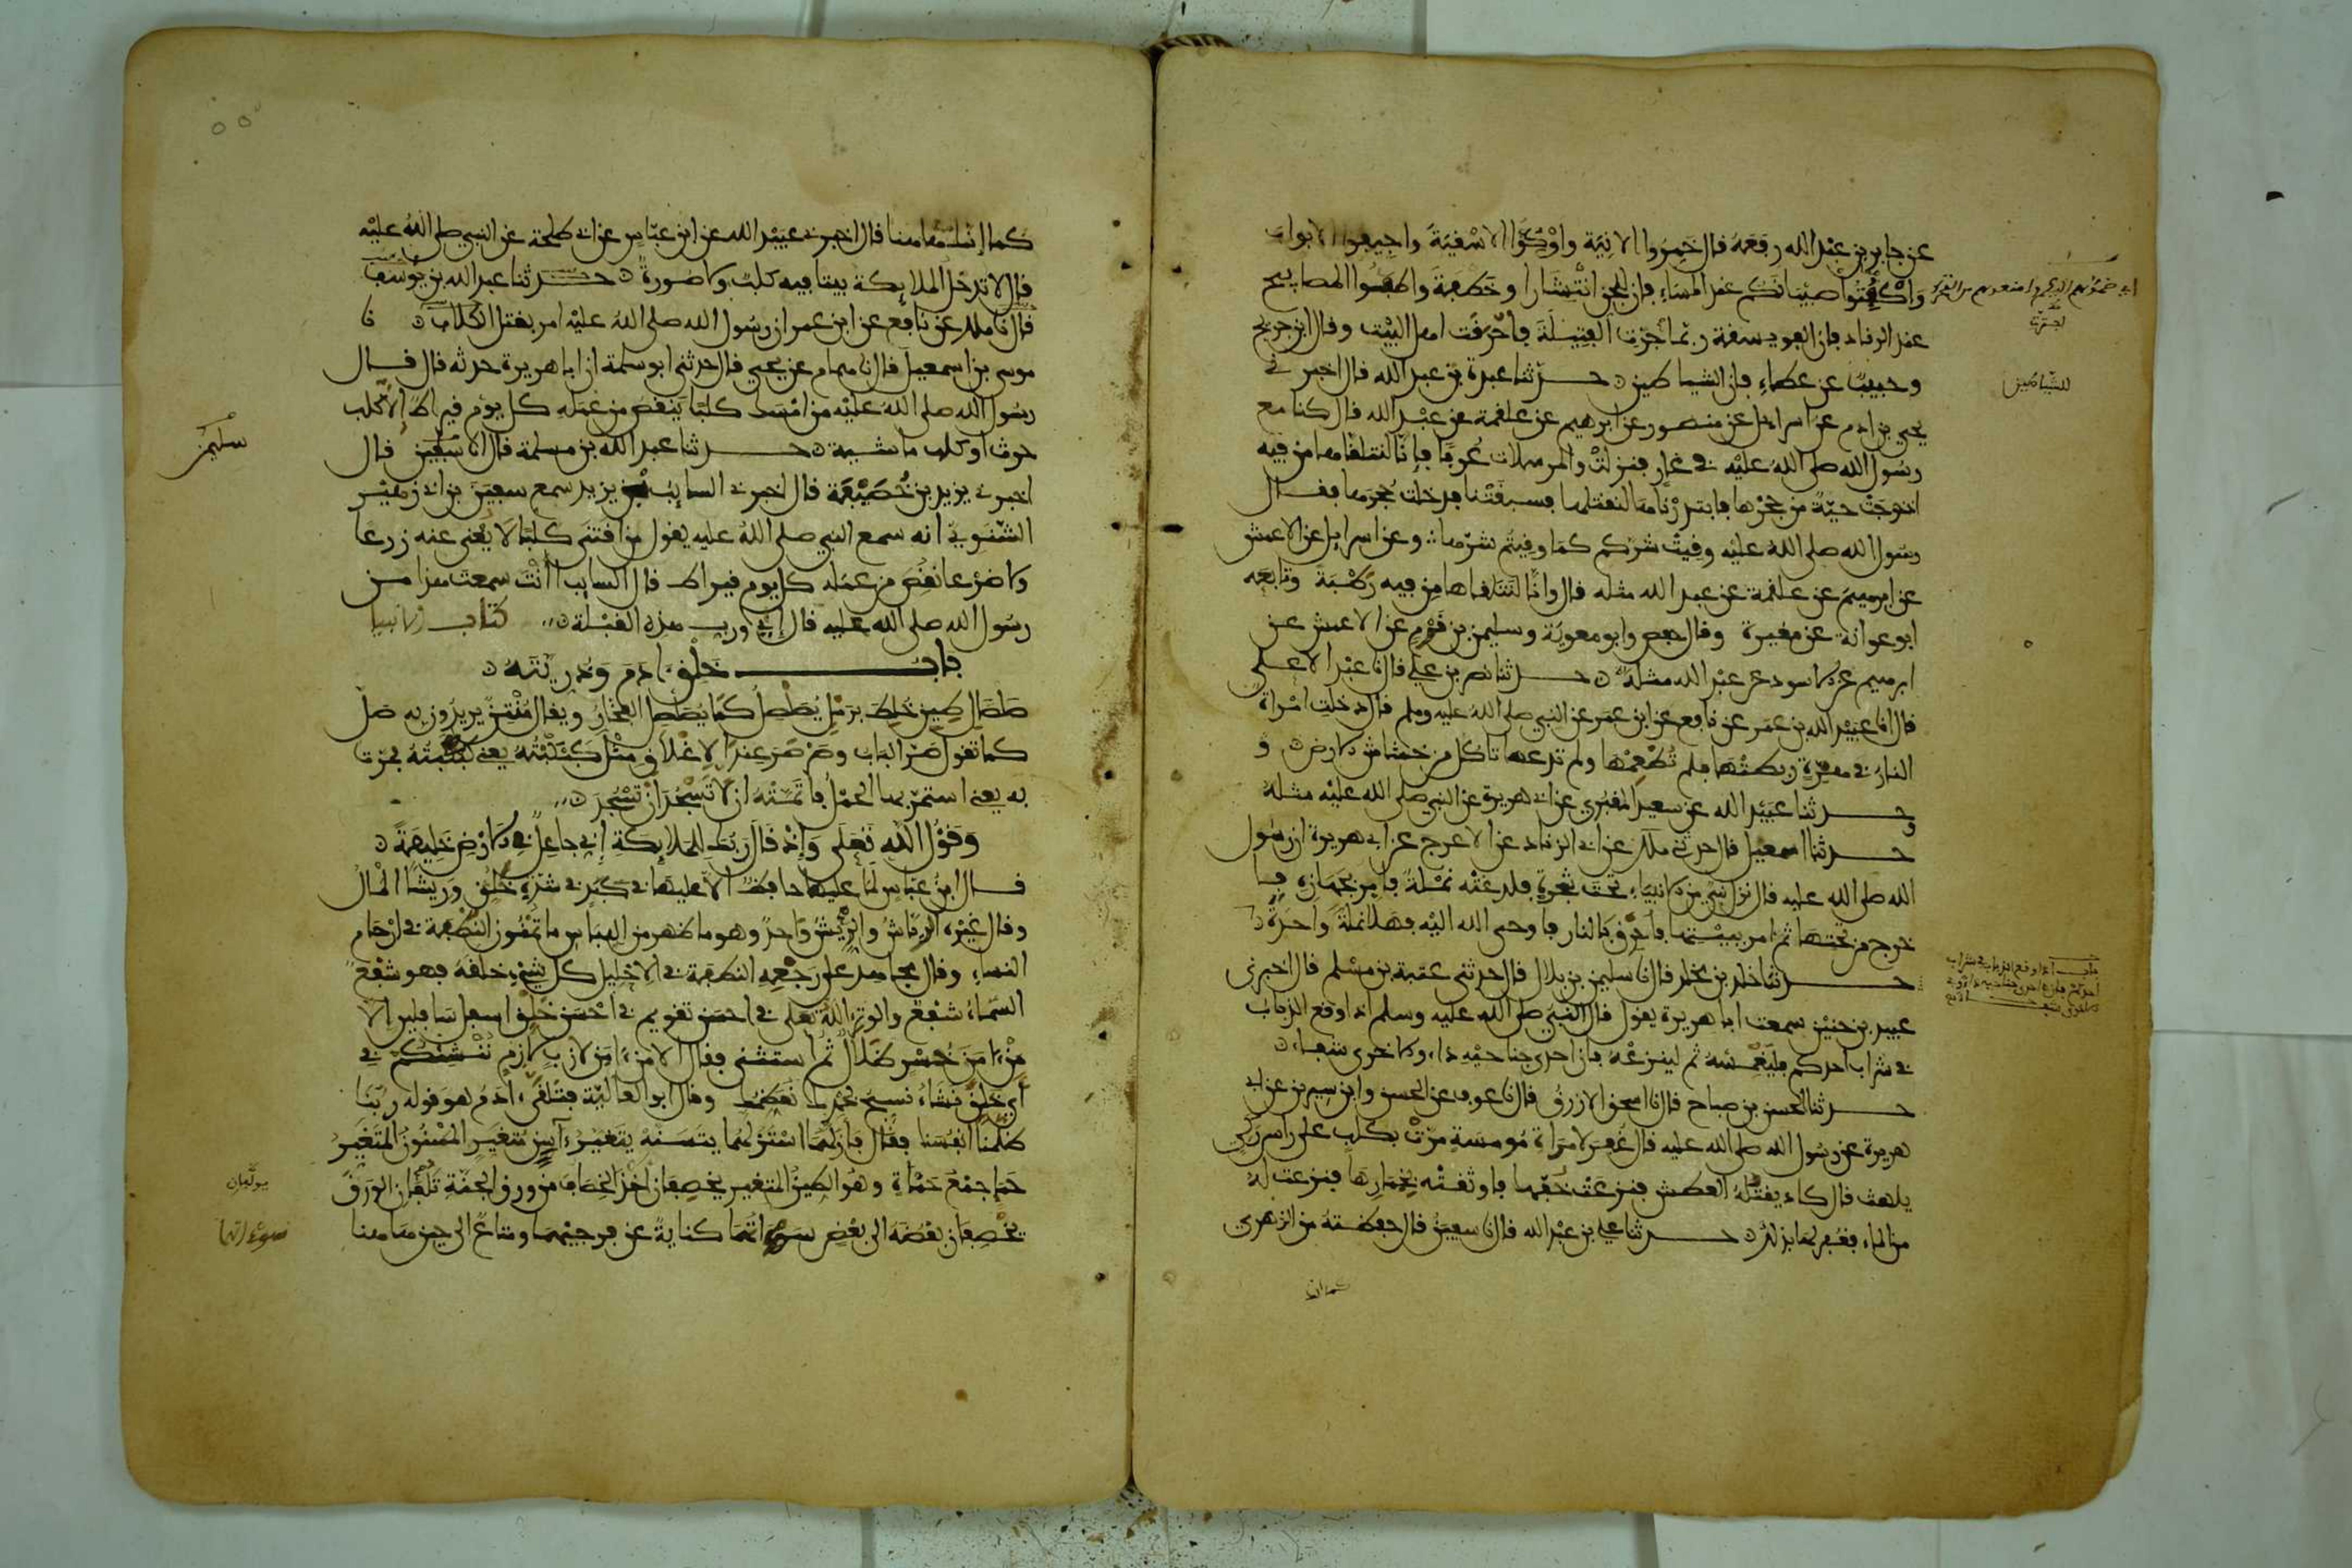 عن جابر بن عبد الله رفعه قال خمروا الانية واوكوا الاسقية واجيفوا الابواب
واكفتوا صبيانكم عند المساء فان للجن انتشارا وخطفة واطفئوا المصابيح
عند الرقاد فان الفويسقة ربما اجترت الفتيلة فاحرقت اهل البيت وقال ابن جريج
وحبيب عن عطاء فان الشياطين حدثنا عبدة بن عبد الله قال اخبرني
يحيى بن ادم عن اسرائل عن منصور عن ابرهيم عن علقمة عن عبد الله قال كنا مع
رسول الله صلى الله عليه في غار فنزلت والمرسلات عرفا فانا لنتلقاها من فيه
اذ خرجت حية من جحرها فابتدرناها لنقتلها فسبقتنا فدخلت جحرها فقال
رسول الله صلى الله عليه وقيت شركم كما وقيتم شرها وعن اسرايل عن الاعمش
عن ابرهيم عن علقمة عن عبد الله مثله قال وانا لنتلقاها من فيه رطبة وتابعه
ابو عوانة عن مغيرة وقال حفص وابو معوية وسليمن بن قرم عن الاعمش عن
ابرهيم عن الاسود عن عبد الله مثله حدثنا نصر بن علي قال نا عبد الاعلى
قال انا عبيد الله بن عمر عن نافع عن ابن عمر عن النبي صلى الله عليه وسلم قال دخلت امراة
النار في هرة ربطتها فلم تطعمها ولم تدعها تاكل من خشاش الارض و
حدثنا عبيد الله عن سعيد المقبري عن ابي هريرة عن النبي صلى الله عليه مثله
حدثنا اسمعيل قال حدثني ملك عن ابي الزناد عن الاعرج عن ابي هريرة ان رسول
الله صلى الله عليه قال نزل نبي من الانبياء تحت شجرة فلدغته نملة فامر بجهازه فا
خرج من تحتها ثم امر ببيتها فاحرق بالنار فاوحى الله اليه فهلا نملة واحدة
حدثنا خلد بن مخلد قال نا سليمن بن بلال قال حدثني عتبة بن مسلم قال اخبرني
عبيد بن حنين سمعت ابا هريرة يقول قال النبي صلى الله عليه وسلم اذا وقع الذباب
في شراب احدكم فليغمسه ثم لينزعه فان احدى جناحيه داء والاخرى شفاء
حدثنا الحسن بن صباح قال نا اسحق الازرق قال نا عوف عن الحسن وابن سيرين عن ابي
هريرة عن رسول الله صلى الله عليه قال غفر لامراة مومسة مرت بكلب على راس ركي
يلهث قال كاد يقتله العطش فنزعت خفها فاوثقته بخمارها فنزعت له
من الماء فغفر لها بذلك حدثنا علي بن عبد الله قال نا سفين قال حفظته من الزهري
كما انك
للشياطين
كما انك هاهنا قال اخبرني عبيد الله عن ابن عباس عن ابي طلحة عن النبي صلى الله عليه
قال لا تدخل الملايكة بيتا فيه كلب ولا صورة حدثنا عبد الله بن يوسف
قال نا ملك عن نافع عن ابن عمر ان رسول الله صلى الله عليه امر بقتل الكلاب نا
موسى بن اسمعيل قال نا همام عن يحيى قال حدثني ابو سلمة ان ابا هريرة حدثه قال قال
رسول الله صلى الله عليه من امسك كلبا ينقص من عمله كل يوم قيراط الا كلب
حرث او كلب ماشية حدثنا عبد الله بن مسلمة قال نا قال
سليمن
اخبرني يزيد بن خصيفة قال اخبرني السايب بن يزيد سمع سفين بن ابي زهير
الشنوي انه سمع النبي صلى الله عليه يقول من اقتنى كلبا لا يغني عنه زرعا
ولا ضرعا نقص من عمله كل يوم قيراط قال السايب اانت سمعت هذا من
رسول الله صلى الله عليه قال اي ورب هذه القبلة كتاب الانبيا
باب خلق ادم وذريته
صلصال طين خلط برمل يصلصل كما يصلصل الفخار ويقال منتن يريدون به صل
كما تقول صر الباب وصرصر عند الاغلاق مثل كبكبته يعني كببته فمرت
به يعني استمر بها الحمل فاتمته ان لا تسجد ان تسجد
وقول الله تعلى واذ قال ربك للملايكة اني جاعل في الارض خليفة
قال ابن عباس لما عليها حافظ الا عليها في كبد في شدة خلق وريشا المال
وقال غيره الرياش والريش واحد وهو ما ظهر من اللباس ما تمنون النطفة في ارحام
النساء وقال مجاهد على رجعه النطفة في الاحليل كل شيء خلقه فهو شفع
السماء شفع والوتر الله تعلى في احسن تقويم في احسن خلق اسفل سافلين الا
من امن خسر ضلال ثم استثنى فقال الا من امن لازب لازم ننشئكم في
اي خلق نشاء نسبح بحمدك نعظمك وقال ابو العالية فتلقى ادم هو قوله ربنا
ظلمنا انفسنا فقال فازلهما استزلهما يتسنه يتغير آسن متغير المسنون المتغير
حما جمع حماة وهو الطين المتغير يخصفان اخذ الخصاف من ورق الجنة تلفان الورق
يولفان
يخصفان بعضه الى بعض سوآتهما كناية عن فرجيهما ومتاع الى حين هاهنا